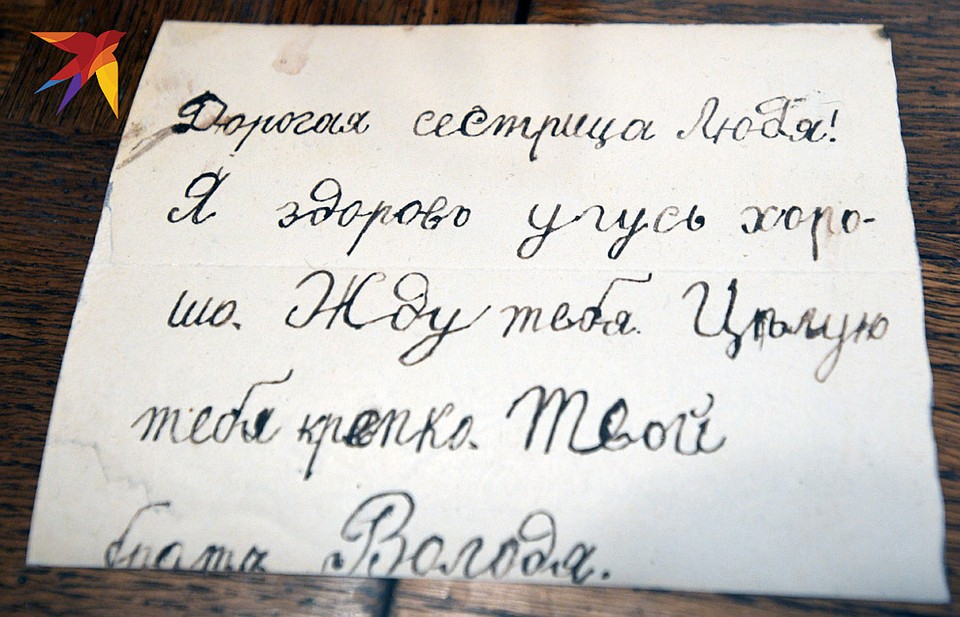 Дорогая сестрица Люба!
Я здорово учусь хоро-
шо. Жду тебя. Цѣлую
тебя крепко. Твой
братъ Володя.